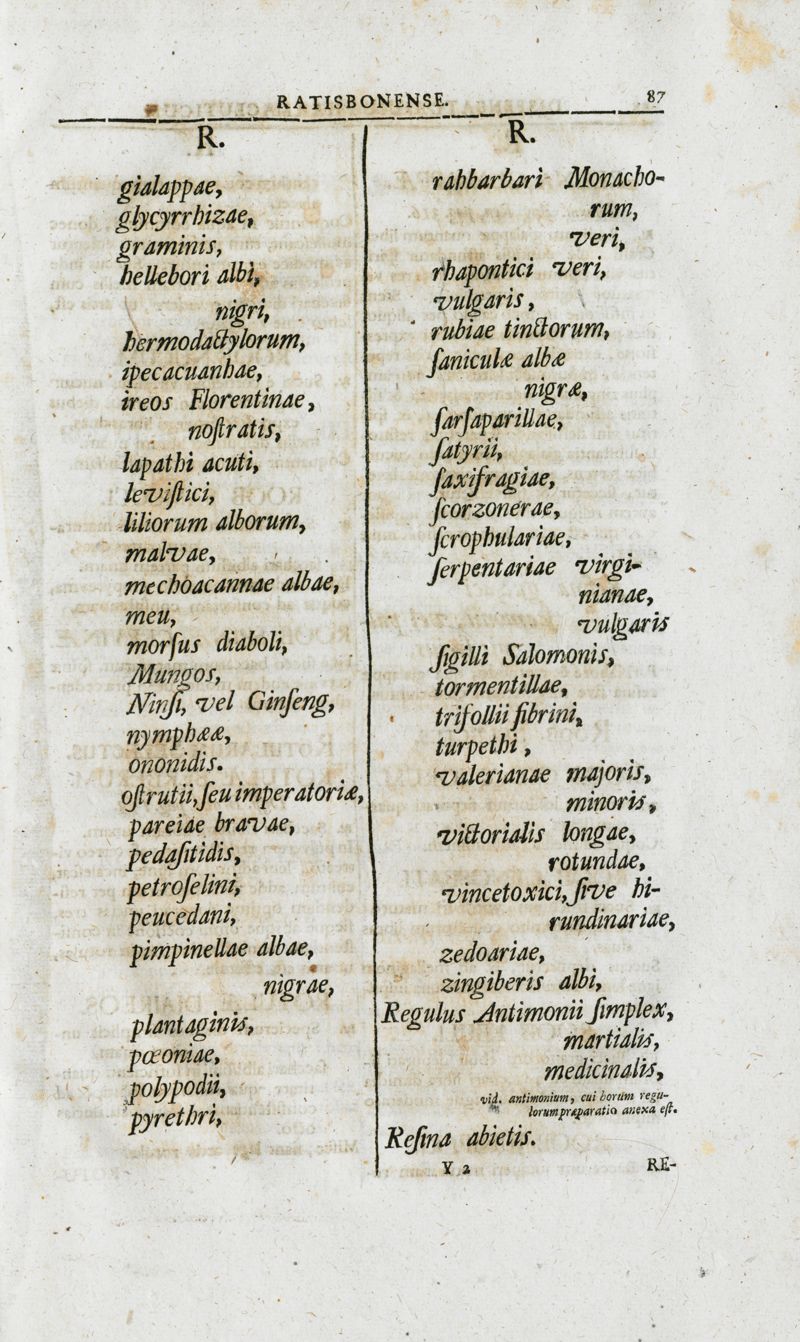 RATISBONENSE. 87
R.
gialappae,
glycyrrhizae,
graminis,
hellebori albi,
nigri,
hermodactylorum,
ipecacuanhae,
ireos Florentinae,
noſtratis,
lapathi acuti,
leviſtici,
liliorum alborum,
malvae,
mechoacannae albae,
meu,
morſus diaboli,
Mungos,
Ninſi, vel Ginſeng,
nymphææ,
ononidis.
oſtrutii, ſeu imperatoriæ,
pareiae bravae,
pedaſitidis,
petroſelini,
peucedani,
pimpinellae albae,
nigrae,
plantaginis,
pœoniae,
polypodii,
pyrethri,
R.
rahbarbari Monacho-
rum,
veri,
rhapontici veri,
vulgaris,
rubiae tinctorum,
ſaniculæ albæ
nigræ,
ſarſaparillae,
ſatyrii,
ſaxifragiae,
ſcorzonerae,
ſcrophulariae,
ſerpentariae virgi-
nianae,
vulgaris
ſigilli Salomonis,
tormentillae,
trifollii fibrini,
turpethi,
valerianae majoris,
minoris,
victorialis longae,
rotundae,
vincetoxici, ſive hi-
rundinariae,
zedoariae,
zingiberis albi,
Regulus Antimonii ſimplex,
martialis,
medicinalis,
vid. antimonium, cui horum regu-
lorum præparatio anexa eſt.
Reſina abietis.
Y 2 RE-